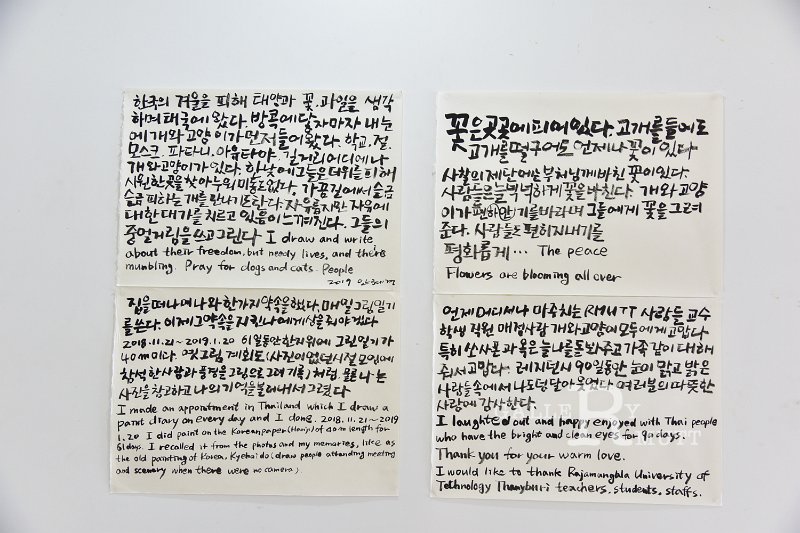 한국의 겨울을 피해 태양과 꽃, 과일을 생각
하며 태국에 왔다. 방콕에 닿자마자 내 눈
에 개와 고양이가 먼저 들어왔다. 학교, 절,
모스크, 파타니, 아유타야, 길거리 어디에나
개와 고양이가 있다. 한낮에 그들은 더위를 피해
시원한 곳을 찾아 누워 미동도 없다. 가끔 길에서 슬금
슬금 피하는 개를 만나기도 한다. 자유롭지만 자유에
대한 대가를 치르고 있음이 느껴진다. 그들의
중얼거림을 쓰고 그린다. I draw and write
about their freedom, but needy lives, and there
mumbling. Pray for dogs and cats. People
2019
집을 떠나며 나와 한가지 약속을 했다. 매일 그림일기
를 쓴다. 이제 그 약속을 지킨 나에게 상을 줘야겠다
2018.11.21~2019.1.20 61일동안 한지위에 그린 일기가
40m이다. 옛그림 계회도(사진이 없던 시절 모임에
참석한 사람과 풍경을 그림으로 그려 기록)처럼, 모른 나는
사진을 참고하고 나의 기억을 불러내서 그렸다.
I made an appointment in Thailand which I draw a
paint diary on every day and I done. 2018.11.21~2019
1.20 I did paint on the Korean paper(Hanji) of 40m length for
61days. I recalled it from the photos and my memories, like as
the old painting of Korea, Kyehoi do(draw people attending meeting
and scenery when there were no camera).
꽃은 곳곳에 피어있다. 고개를 들어도
고개를 떨구어도 언제나 꽃이 있다
사찰의 제단에는 부처님께 바친 꽃이 있다.
사람들은 늘 넉넉하게 꽃을 바친다. 개와 고양
이가 편하기를 바라며 그들에게 꽃을 그려
준다. 사람들도 평히 지내기를
평화롭게... The peace
Flowers are blooming all over
언제 어디서나 마주치는 RMUTT 사람들 교수
학생 직원 매점사람 개와 고양이 모두에게 고맙다.
특히 산사폰과 옥은 늘 나를 돌봐주고 가족같이 대해
줘서 고맙다. 레지던시 90일동안 눈이 맑고 밝은
사람들 속에서 나도 덩달아 웃었다. 여러분의 따뜻한
사랑에 감사한다.
I laughted out and happy enjoyed with Thai people
who have the bright and clean eyes for 90days.
Thank you for your warm love.
I would like to thank Rajamanghla University of
Technology Thanyburi teachers, students, staffs.
GALLERY
RMUTT